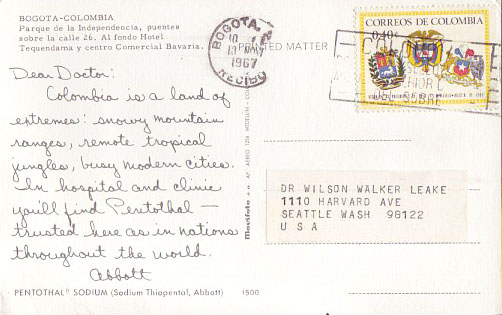 BOGOTA-COLOMBIA
Parque de la Independencia, puentes
sobre la calle 26. Al fondo Hotel
Tequendama y centro Comercial Bavaria.
PRINTED MATTER
BOGOTA
1967
RECIBO
CORREOS DE COLOMBIA
0,40
SOBRE
Dear Doctor:
Colombia is a land of
extremes: snowy mountain
ranges, remote tropical
jungles, busy modern cities.
In hospital and clinic
you'll find Pentothal —
trusted here as in nations
throughout the world.
Abbott
PENTOTHAL® SODIUM (Sodium Thiopental, Abbott) 1500
Movifoto
DR WILSON WALKER LEAKE
1110 HARVARD AVE
SEATTLE WASH 98122
U S A